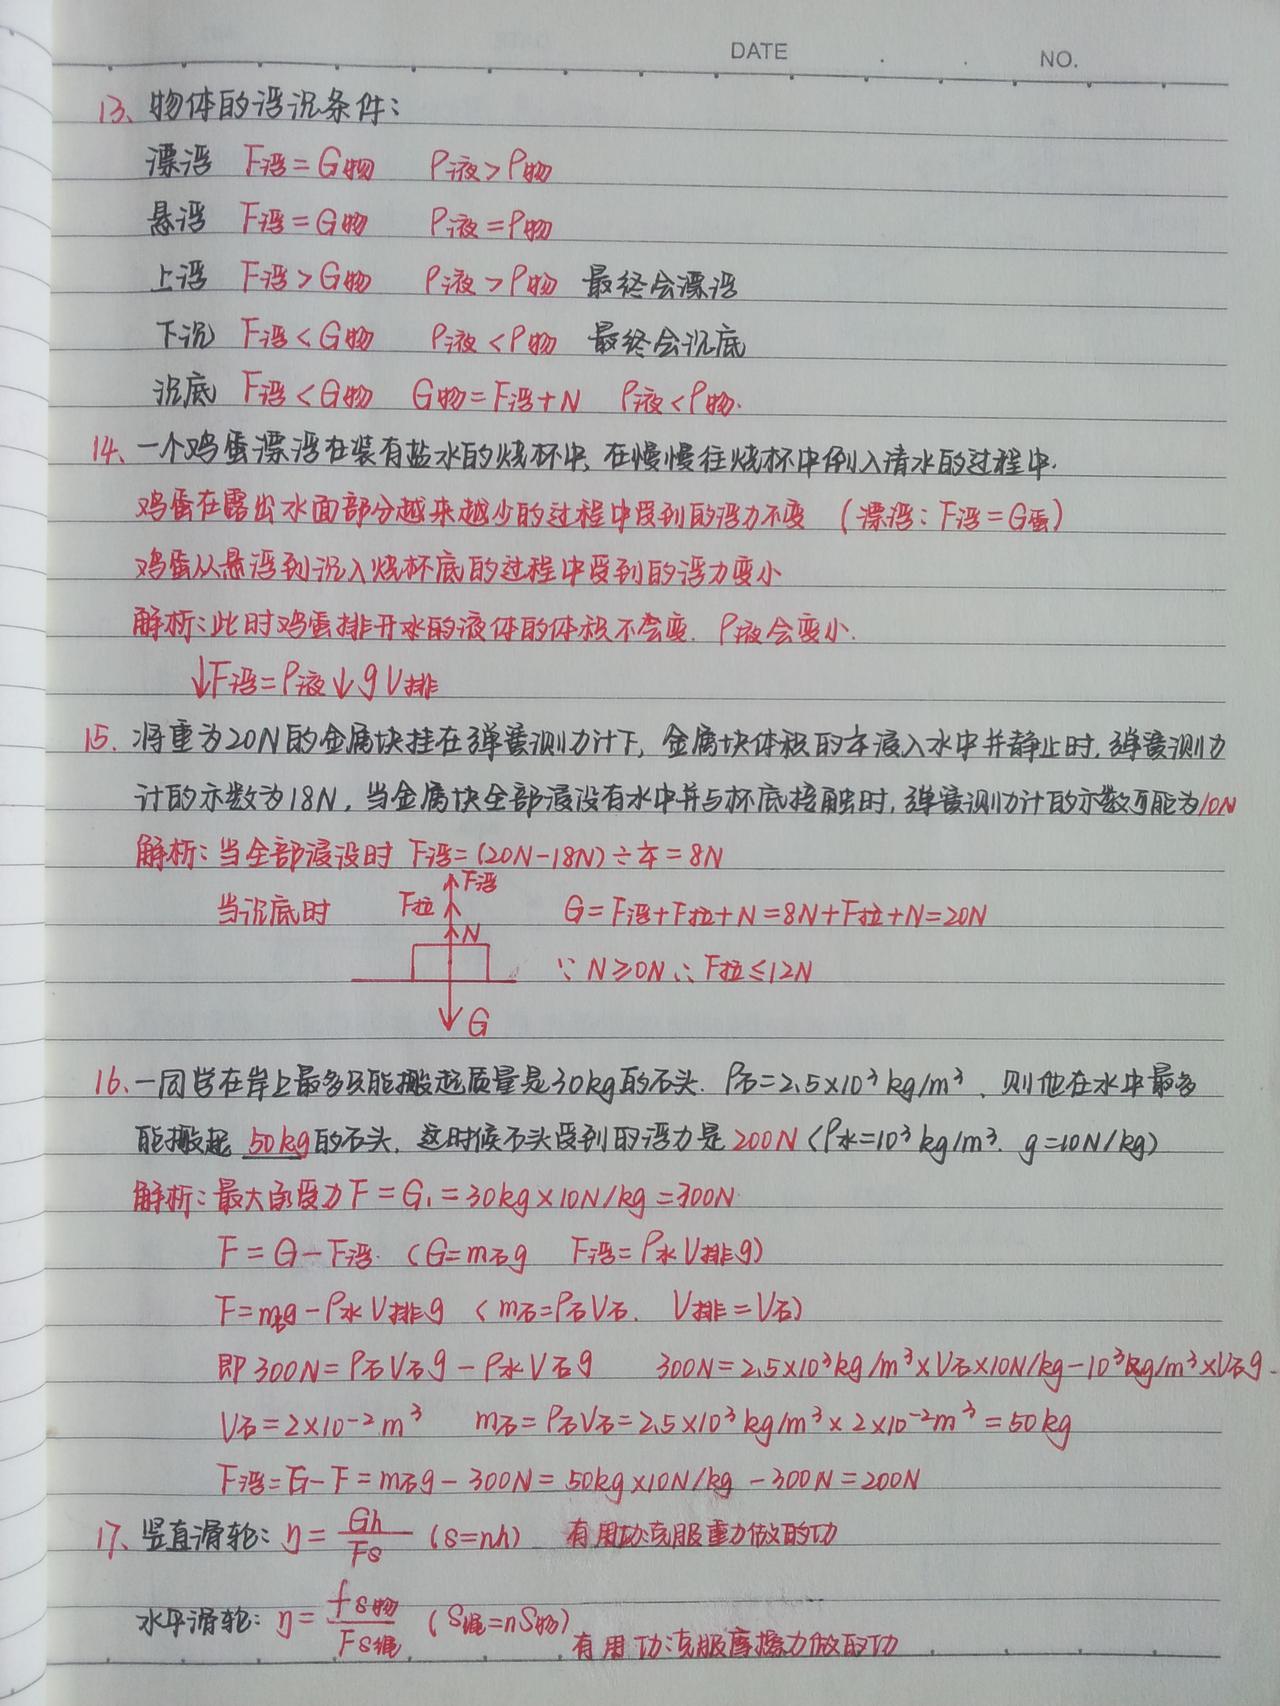 DATE
NO.
13、物体的浮沉条件：
漂浮 F浮=G物 ρ液>ρ物
悬浮 F浮=G物 ρ液=ρ物
上浮 F浮>G物 ρ液>ρ物 最终会漂浮
下沉 F浮<G物 ρ液<ρ物 最终会沉底
沉底 F浮<G物 G物=F浮+N ρ液<ρ物.
14、一个鸡蛋漂浮在装有盐水的烧杯中,在慢慢往烧杯中倒入清水的过程中.
鸡蛋在露出水面部分越来越少的过程中受到的浮力不变 (漂浮：F浮=G蛋)
鸡蛋从悬浮到沉入烧杯底的过程中受到的浮力变小
解析：此时鸡蛋排开水的液体的体积不会变. ρ液会变小.
↓F浮=ρ液↓gV排
15. 将重为20N的金属块挂在弹簧测力计下,金属块体积的1/4浸入水中并静止时,弹簧测力
计的示数为18N,当金属块全部浸没有水中并与杯底接触时,弹簧测力计的示数可能为10N
解析：当全部浸没时 F浮=(20N-18N)÷1/4=8N
F浮
当沉底时 F拉 G=F浮+F拉+N=8N+F拉+N=20N
N
∵N≥0N∴F拉≤12N
G
16、一同学在岸上最多只能搬起质量是30kg的石头. ρ石=2.5×10³kg/m³, 则他在水中最多
能搬起 50kg的石头,这时候石头受到的浮力是 200N (ρ水=10³kg/m³. g=10N/kg)
解析：最大承受力F=G₁=30kg×10N/kg=300N
F=G-F浮. (G=m石g F浮=ρ水V排g)
F=m石g-ρ水V排g (m石=ρ石V石. V排=V石)
即300N=ρ石V石g-ρ水V石g 300N=2.5×10³kg/m³×V石×10N/kg-10³kg/m³×V石g
V石=2×10⁻²m³ m石=ρ石V石=2.5×10³kg/m³×2×10⁻²m³=50kg
F浮=G-F=m石g-300N=50kg×10N/kg-300N=200N
17、竖直滑轮：η=Gh/Fs (s=nh) 有用功:克服重力做的功
水平滑轮：η=fs物/Fs绳 (s绳=ns物) 有用功:克服摩擦力做的功